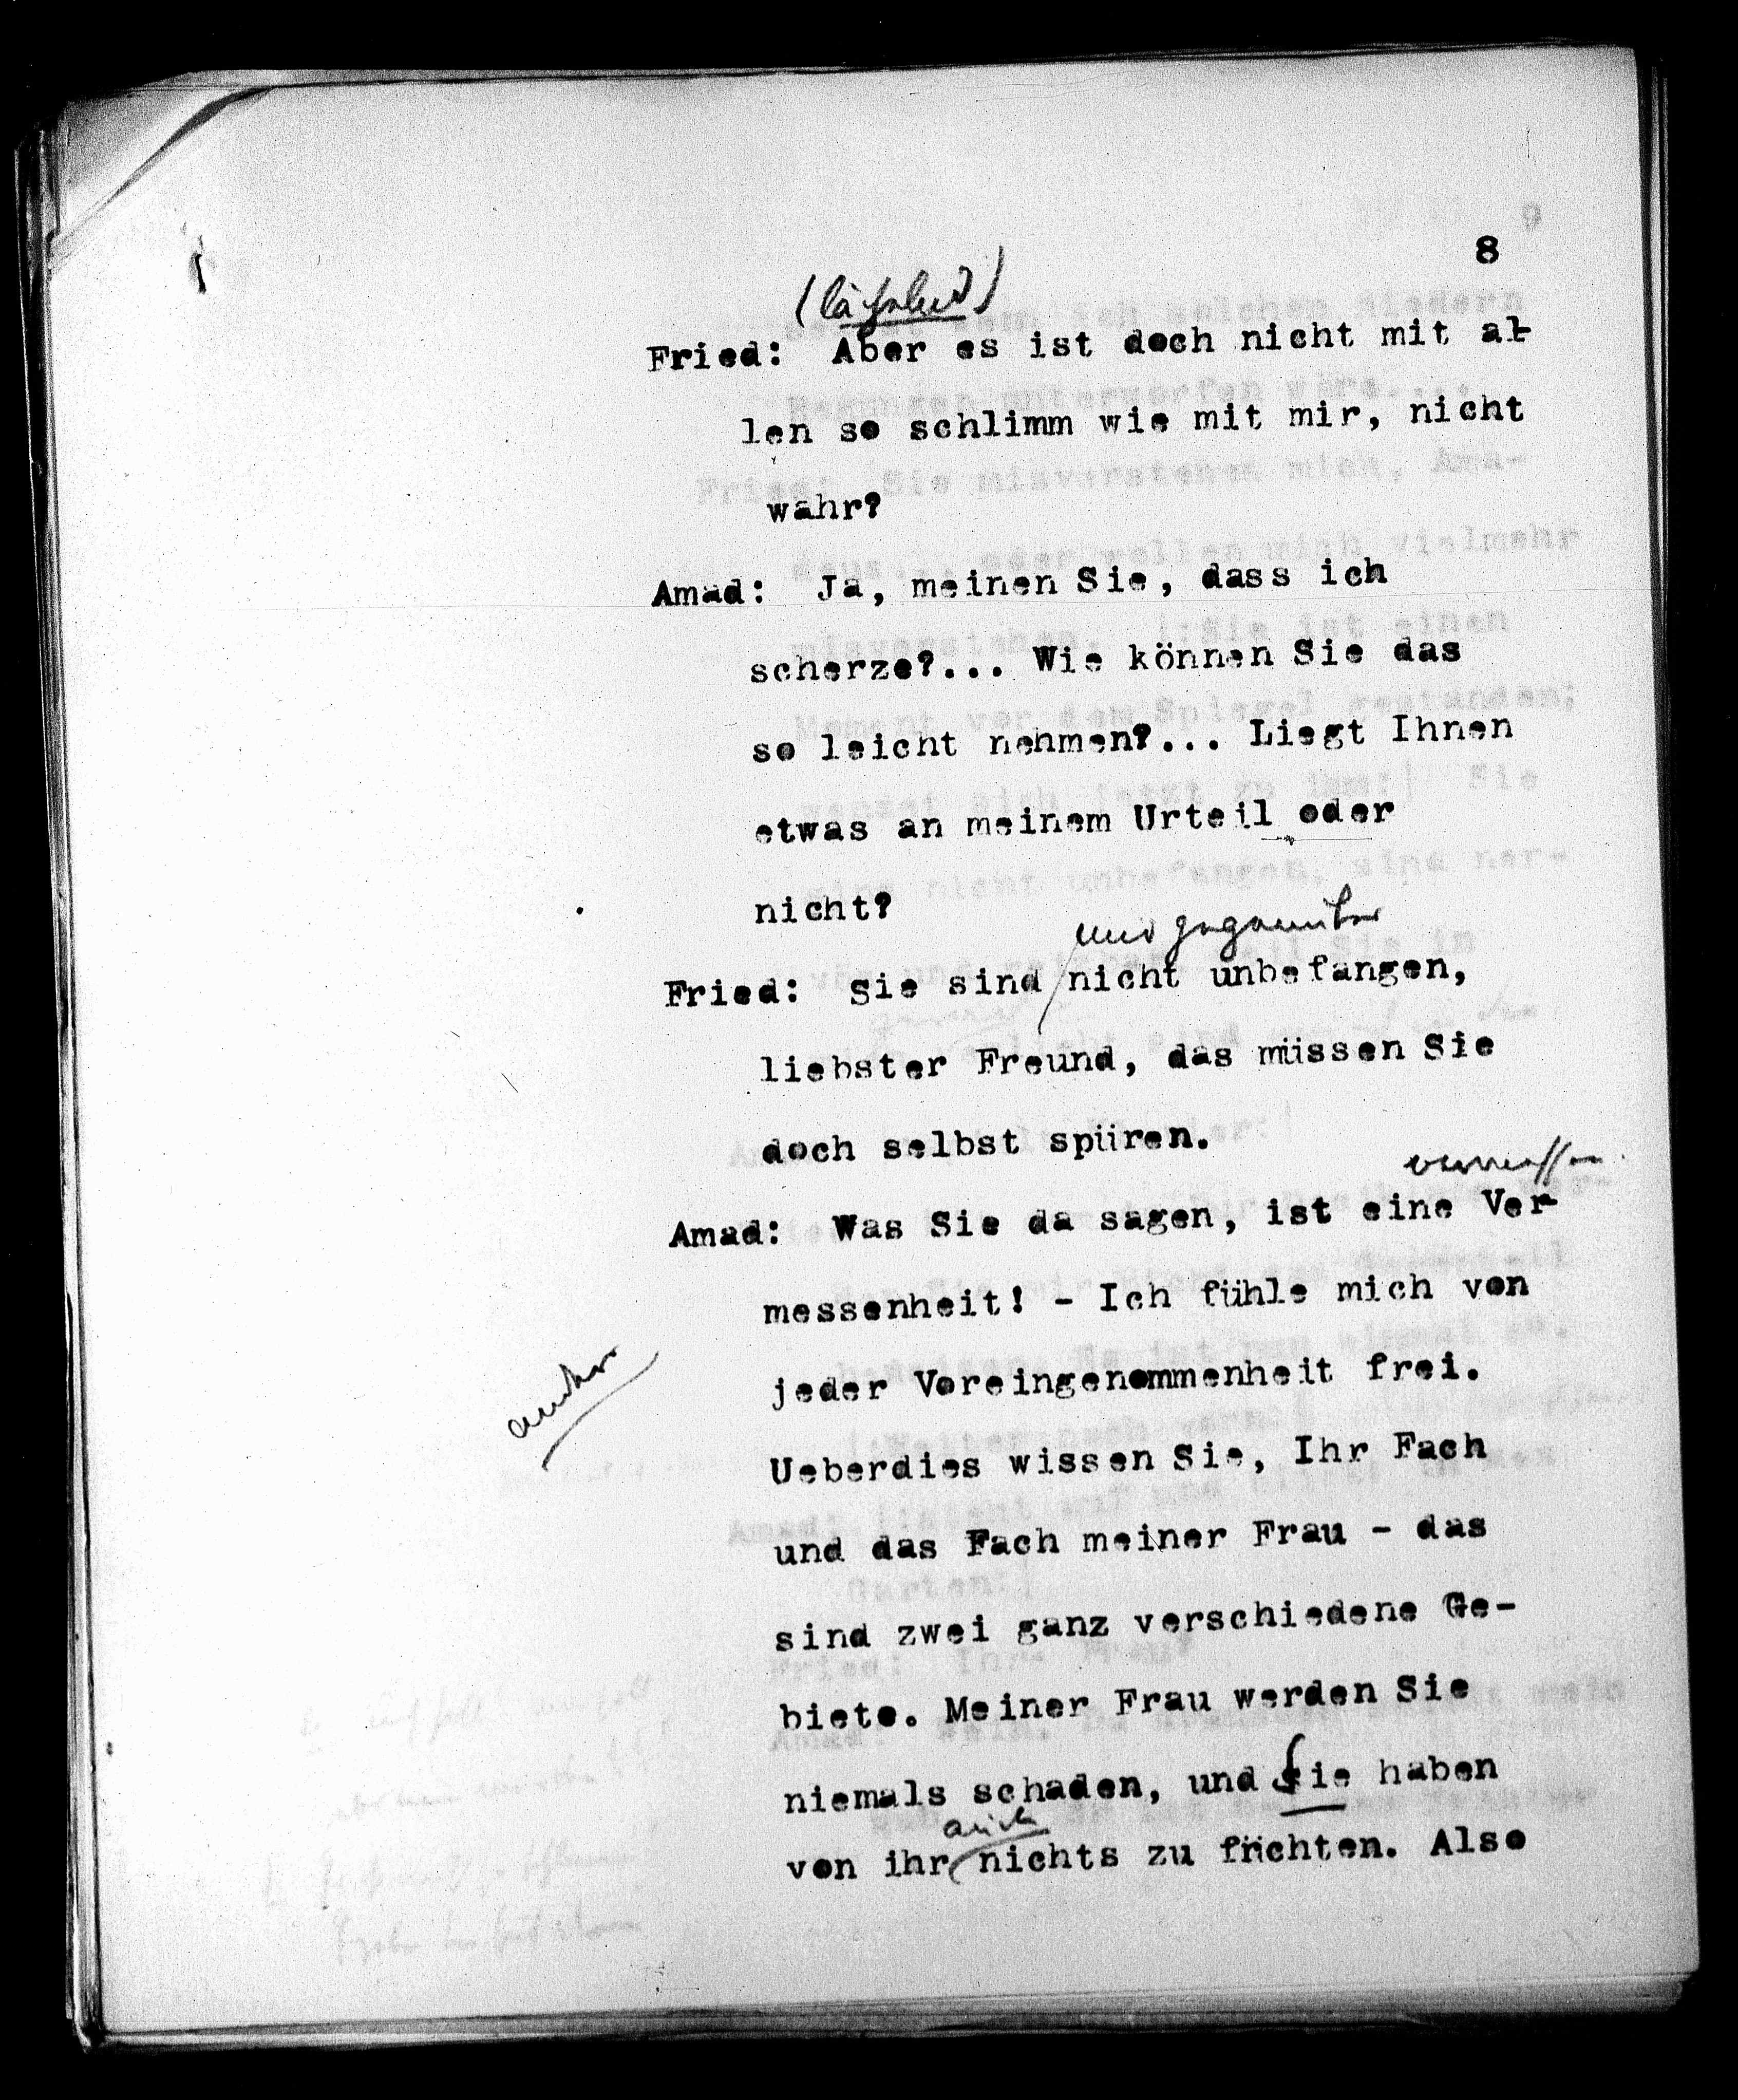 8
(lächelnd)
Fried: Aber es ist doch nicht mit al-
len so schlimm wie mit mir, nicht
wahr?
Amad: Ja, meinen Sie, dass ich
scherze?... Wie können Sie das
so leicht nehmen?... Liegt Ihnen
etwas an meinem Urteil oder
nicht?
mir gegenüber
Fried: Sie sind nicht unbefangen,
liebster Freund, das müssen Sie
doch selbst spüren.
vermessen
Amad: Was Sie da sagen, ist eine Ver-
messenheit! - Ich fühle mich von
jeder Voreingenommenheit frei.
Ueberdies wissen Sie, Ihr Fach
und das Fach meiner Frau - das
sind zwei ganz verschiedene Ge-
biete. Meiner Frau werden Sie
niemals schaden, und Sie haben
auch
von ihr nichts zu früchten. Also